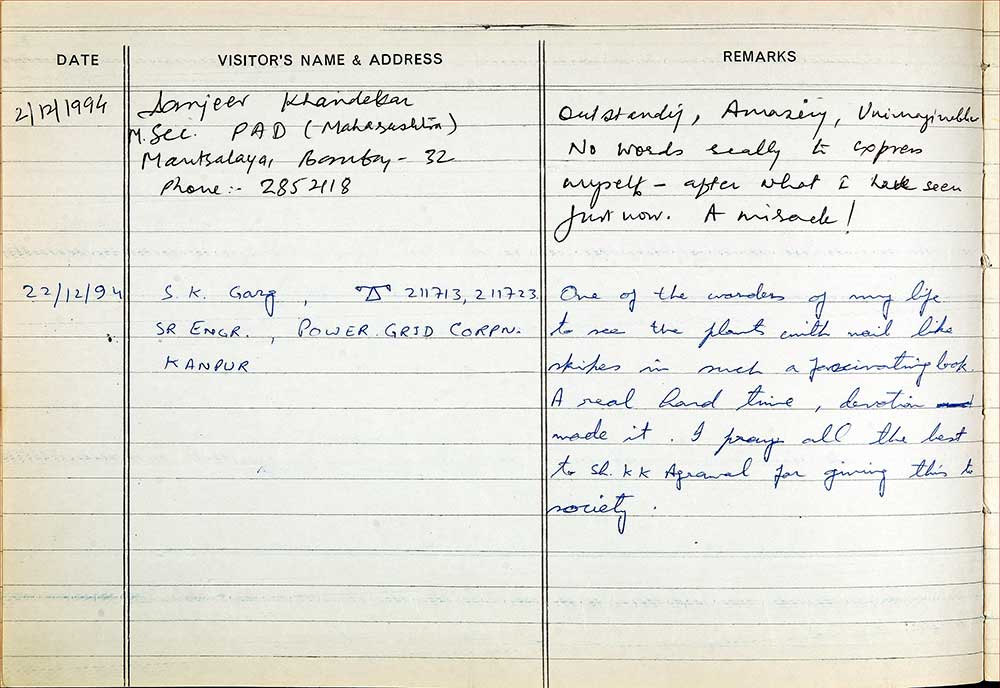 DATE VISITOR'S NAME & ADDRESS REMARKS
2/12/1994 Sanjeev Khandekar Outstandig, Amazing, Unimaginable
M.Sec. PAD (Maharashtra) No words really to express
Mantralaya, Bombay - 32 myself - after what I have seen
Phone:- 2852118 Just now. A miracle!
22/12/94 S. K. Garg, 211713, 211723 One of the wonders of my life
SR ENGR., POWER.GRID CORPN. to see the plants with nail like
KANPUR skipes in such a fascinating look.
A real hard time, devotion
made it. I pray all the best
to Sh. KK Agrawal for giving this to
society.